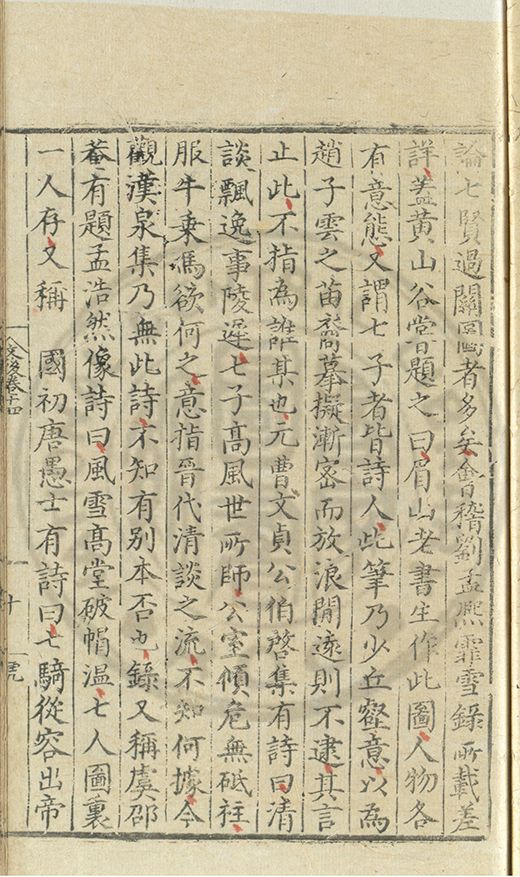 論七賢過關圖者多矣會稽劉孟熙霏雪錄所載差
詳蓋黃山谷嘗題之曰眉山老書生作此圖人物各
有意態又謂七子者皆詩人此筆乃少丘壑意以為
趙子雲之苗裔摹擬漸密而放浪閒遠則不逮其言
止此不指為誰某也元曹文貞公伯啓集有詩曰清
談飄逸事陵遲七子高風世所師公室傾危無砥柱
服牛乗馬欲何之意指晉代清談之流不知何據今
觀漢泉集乃無此詩不知有别本否也錄又稱虞邵
菴有題孟浩然像詩曰風雪髙堂破帽溫七人圖裏
一人存又稱 國初唐愚士有詩曰七騎從容出帝
文後卷十四
十